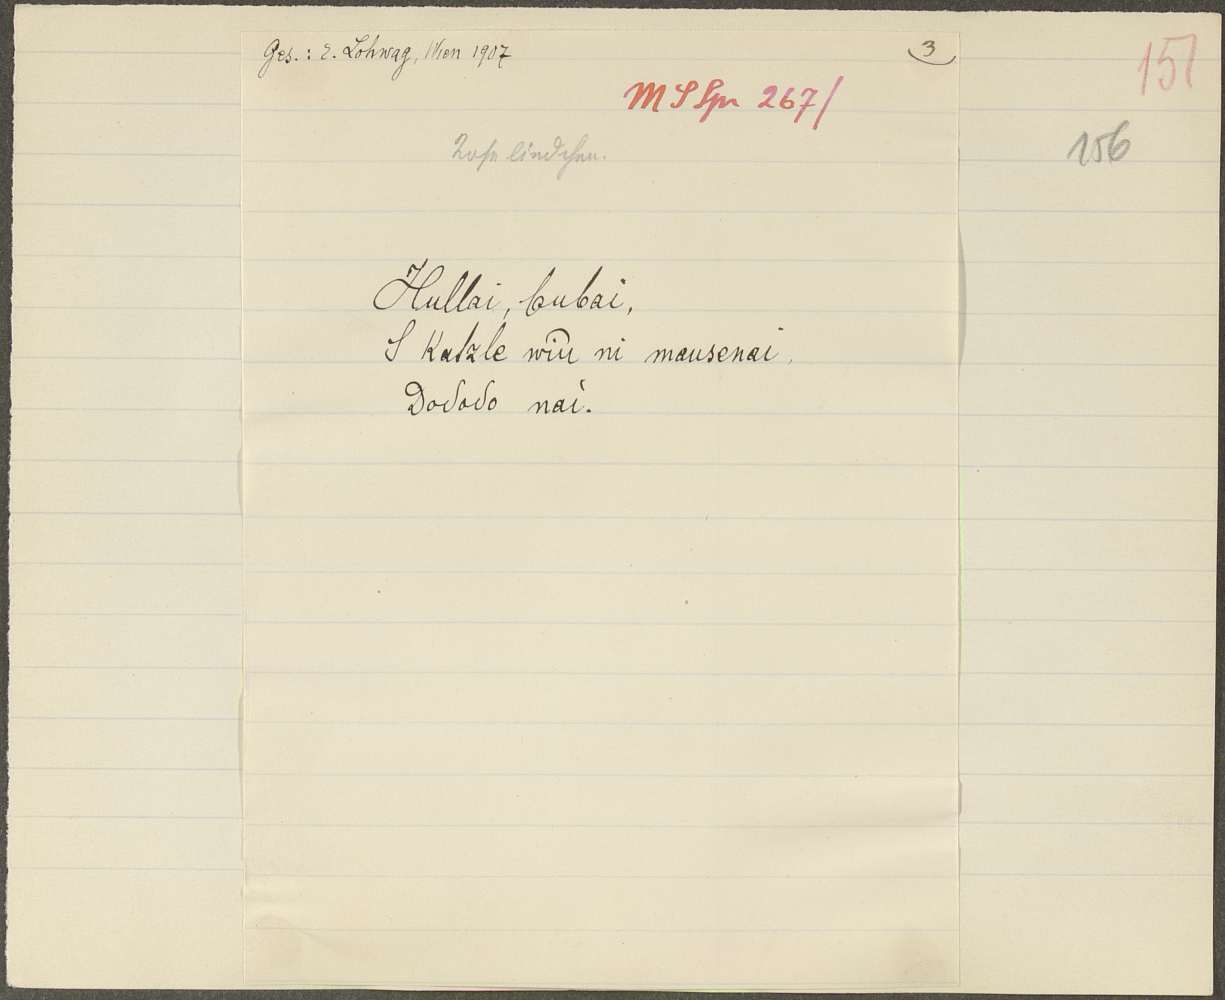 Ges.: E. Lohwag, Wien 1907
3
151
MS Spr 267/
156
Hullai, bubai,
S Katzle wiu ni mausenai,
Dododo nai.